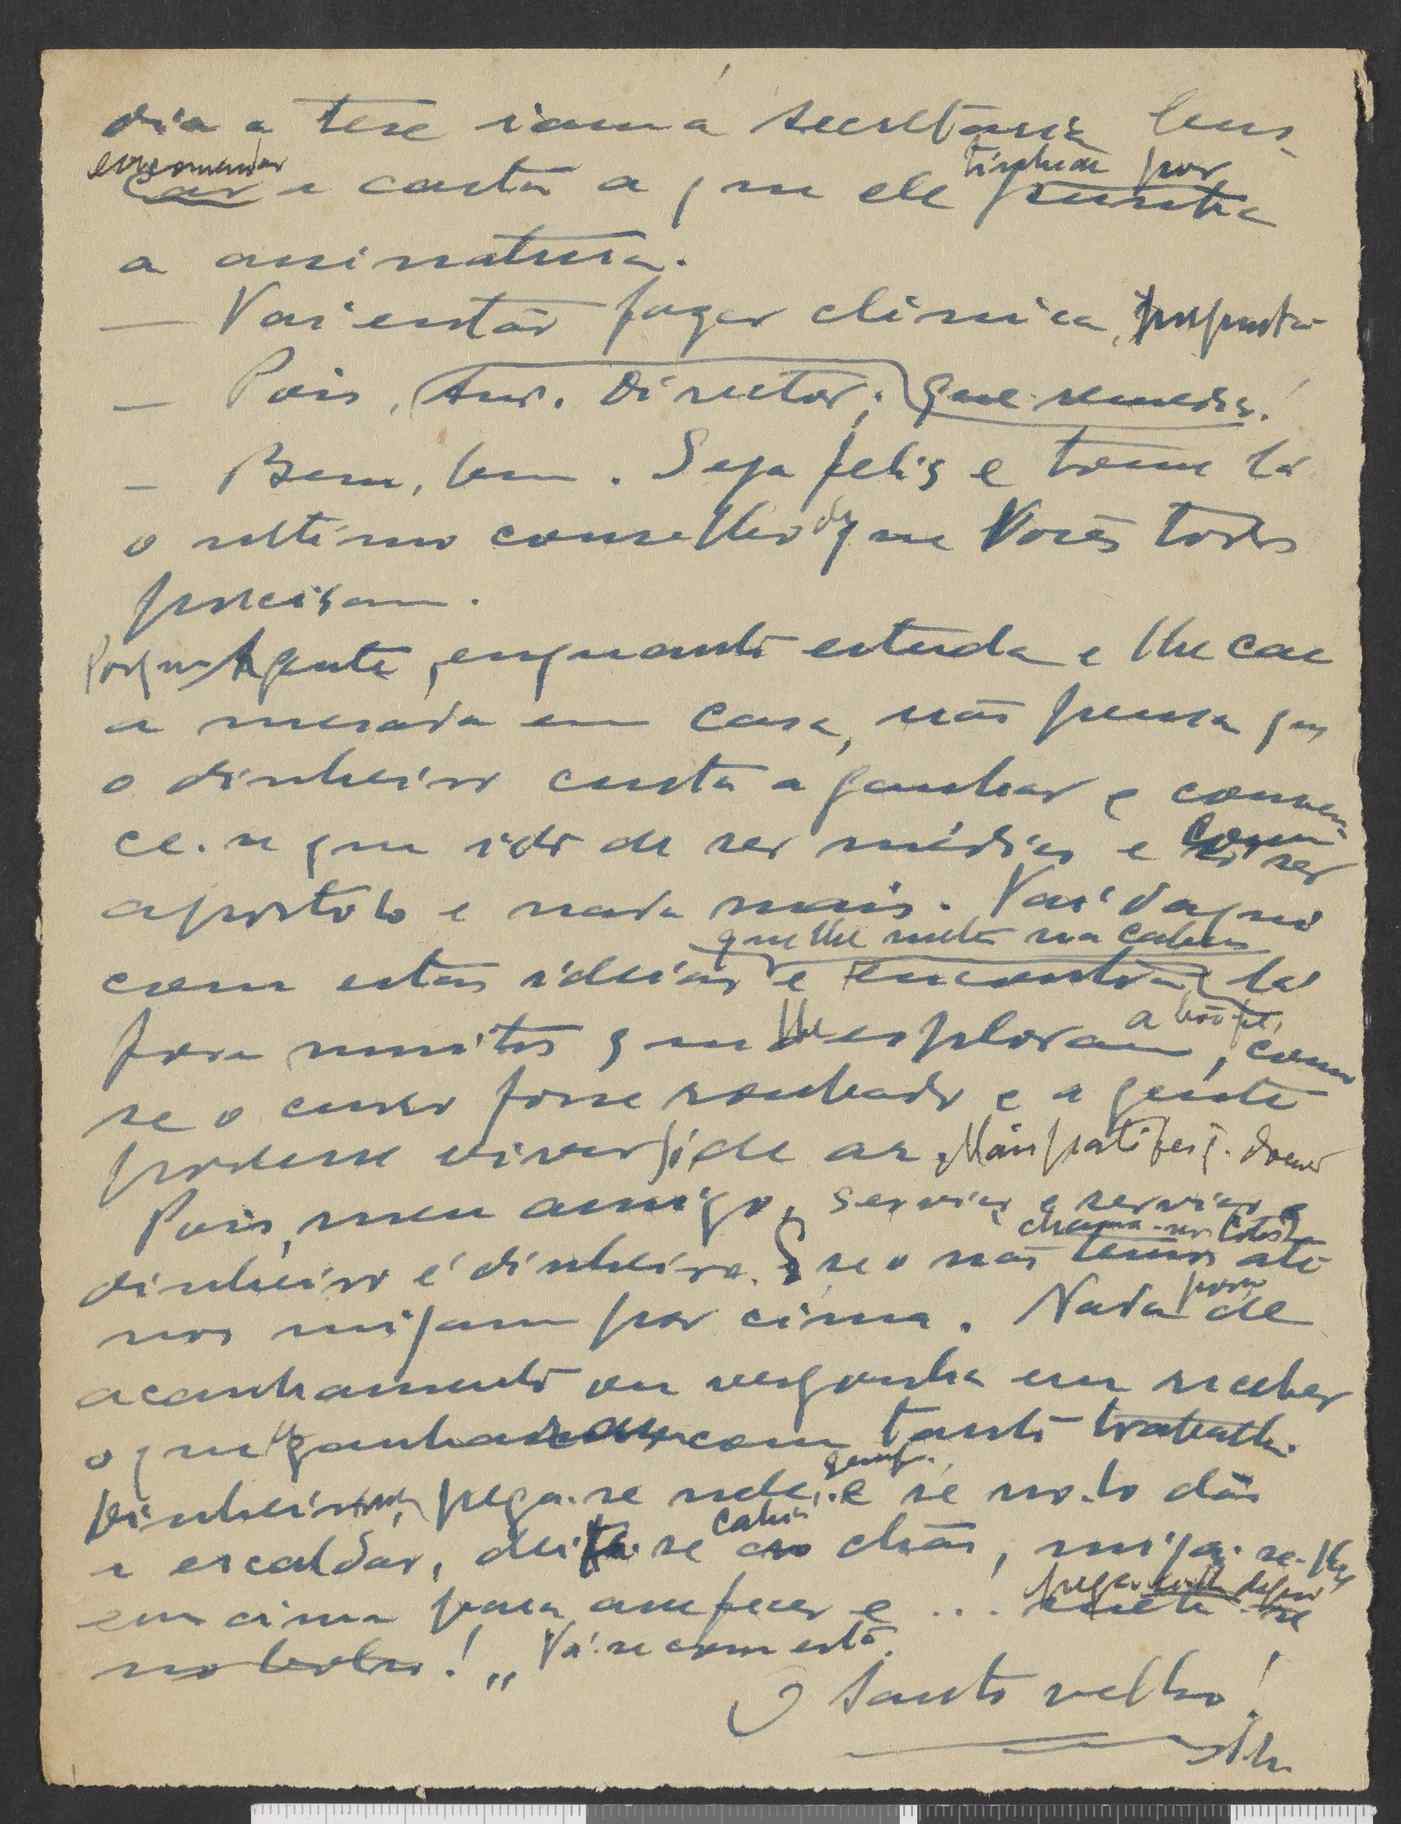 dia a tese iam á secretaria bus-
encomendar tinham por
car a carta a que ele punha
a assinatura.
— Vai então fazer clinica,
— Pois, Snr. Director, que remedio!
— Bem, bem. Seja feliz e tome lá
o ultimo conselho de que Vocês todos
precisam.
Porque A gente, enquanto estuda e lhe cae
a mesada em casa, não pensa que
o dinheiro custa a ganhar e conven-
ce-se que isto de ser médico é como ser
apostolo e nada mais. Vai daqui
que lhe metem na cabeça
com estas ideias e encontra lá
fora muitos que lhe exploram a boa fé, como
se o curso fosse roubado e a gente
podesse viver de ar. Mais
Pois, meu amigo, serviço é serviço e
chama-nos
dinheiro é dinheiro. Se o não temos até
nos mijam por cima. Nada de
acanhamento ou vergonha em receber
o que se ganha com tanto trabalho.
Dinheiro, pega-se nele, e se no-lo dão
a escaldar, deita-se ao chão, mija-se-lhe
em cima para arrefecer e ... mete-se
no bolso!„ Vá-se com esta.
O Santo velho!